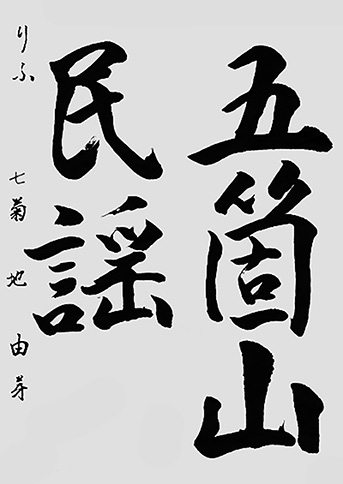 五箇山
民謡
りふ 七 菊地由芽